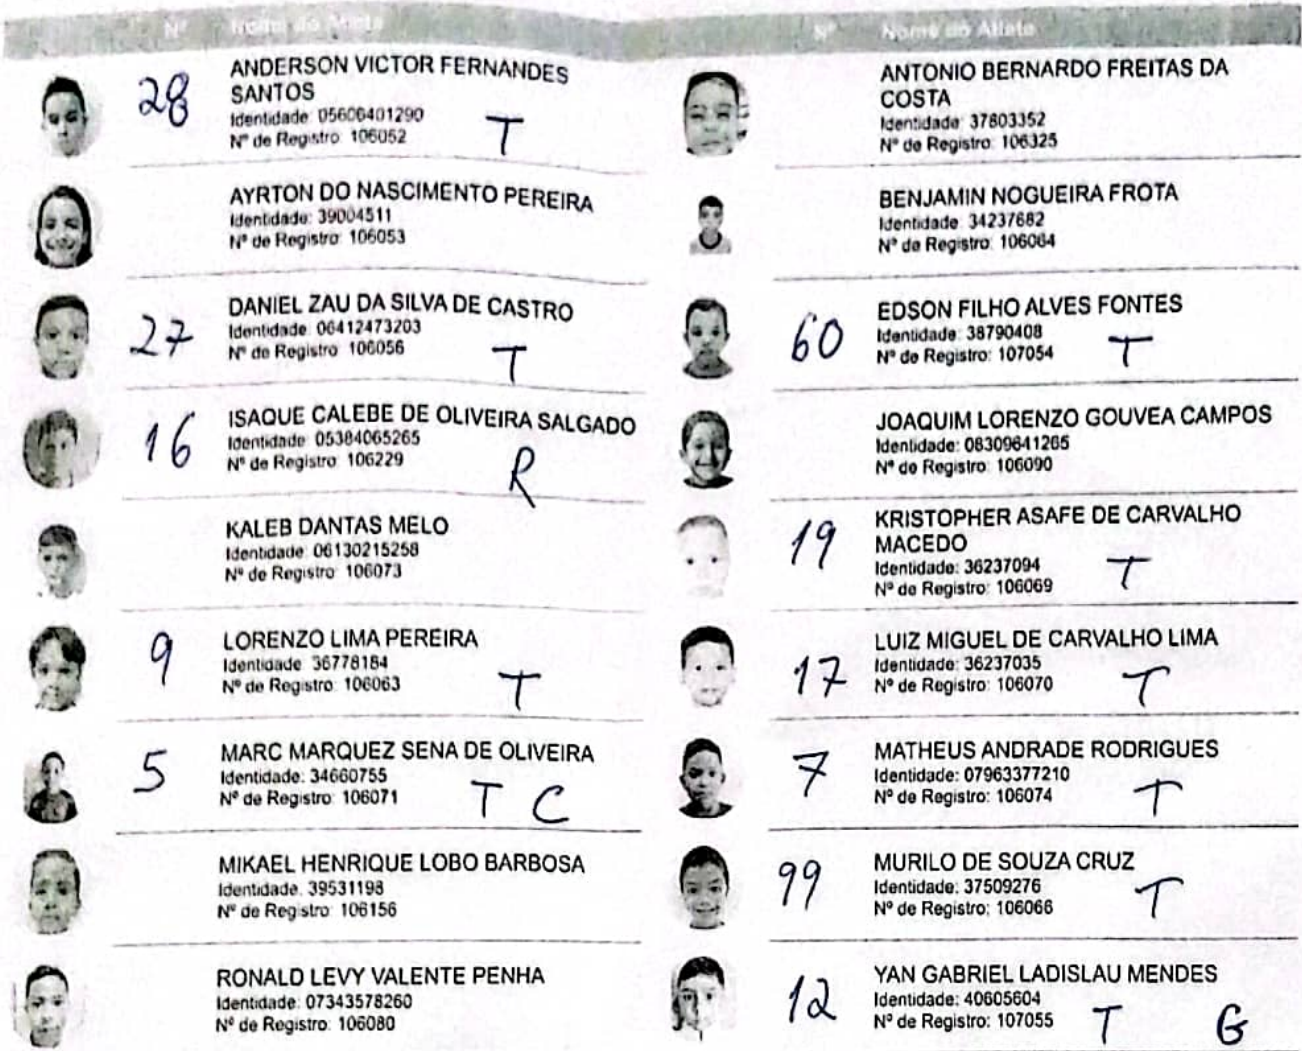 Nº Nome do Atleta
28
ANDERSON VICTOR FERNANDES
SANTOS
Identidade: 05606401290
Nº de Registro: 106052
T
AYRTON DO NASCIMENTO PEREIRA
Identidade: 39004511
Nº de Registro: 106053
27
DANIEL ZAU DA SILVA DE CASTRO
Identidade: 06412473203
Nº de Registro: 106056
T
16
ISAQUE CALEBE DE OLIVEIRA SALGADO
Identidade: 05384065265
Nº de Registro: 106229
R
KALEB DANTAS MELO
Identidade: 06130215258
Nº de Registro: 106073
9
LORENZO LIMA PEREIRA
Identidade: 36778184
Nº de Registro: 106063
T
5
MARC MARQUEZ SENA DE OLIVEIRA
Identidade: 34660755
Nº de Registro: 106071
T C
MIKAEL HENRIQUE LOBO BARBOSA
Identidade: 39531198
Nº de Registro: 106156
RONALD LEVY VALENTE PENHA
Identidade: 07343578260
Nº de Registro: 106080
Nº Nome do Atleta
ANTONIO BERNARDO FREITAS DA
COSTA
Identidade: 37803352
Nº de Registro: 106325
BENJAMIN NOGUEIRA FROTA
Identidade: 34237682
Nº de Registro: 106064
60
EDSON FILHO ALVES FONTES
Identidade: 38790408
Nº de Registro: 107054
T
JOAQUIM LORENZO GOUVEA CAMPOS
Identidade: 08309641265
Nº de Registro: 106090
19
KRISTOPHER ASAFE DE CARVALHO
MACEDO
Identidade: 36237094
Nº de Registro: 106069
T
17
LUIZ MIGUEL DE CARVALHO LIMA
Identidade: 36237035
Nº de Registro: 106070
T
7
MATHEUS ANDRADE RODRIGUES
Identidade: 07963377210
Nº de Registro: 106074
T
99
MURILO DE SOUZA CRUZ
Identidade: 37509276
Nº de Registro: 106066
T
12
YAN GABRIEL LADISLAU MENDES
Identidade: 40605604
Nº de Registro: 107055
T G